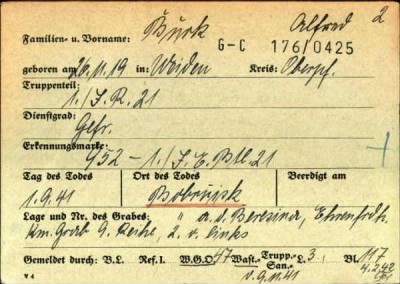 2
Familien- u. Vorname: Bürk Alfred
G-C 176/0425
geboren am 26.11.19 in: Weiden Kreis: Oberpf.
Truppenteil:
1./J.R. 21
Dienstgrad:
Gefr.
Erkennungsmarke:
452 - 1./J.E.Btl. 21
Tag des Todes Ort des Todes Beerdigt am
1.9.41 Bobruisk
Lage und Nr. des Grabes: " a.d. Beresina, Ehrenfrdh.
Km. Grab 9. Reihe, 2. v. links
Gemeldet durch: B.L. Ref.I. W.G.O. 47 Wast. Trupp. San. L. 3 Bl. 117
v. 9.11.41 4.2.42
V 4